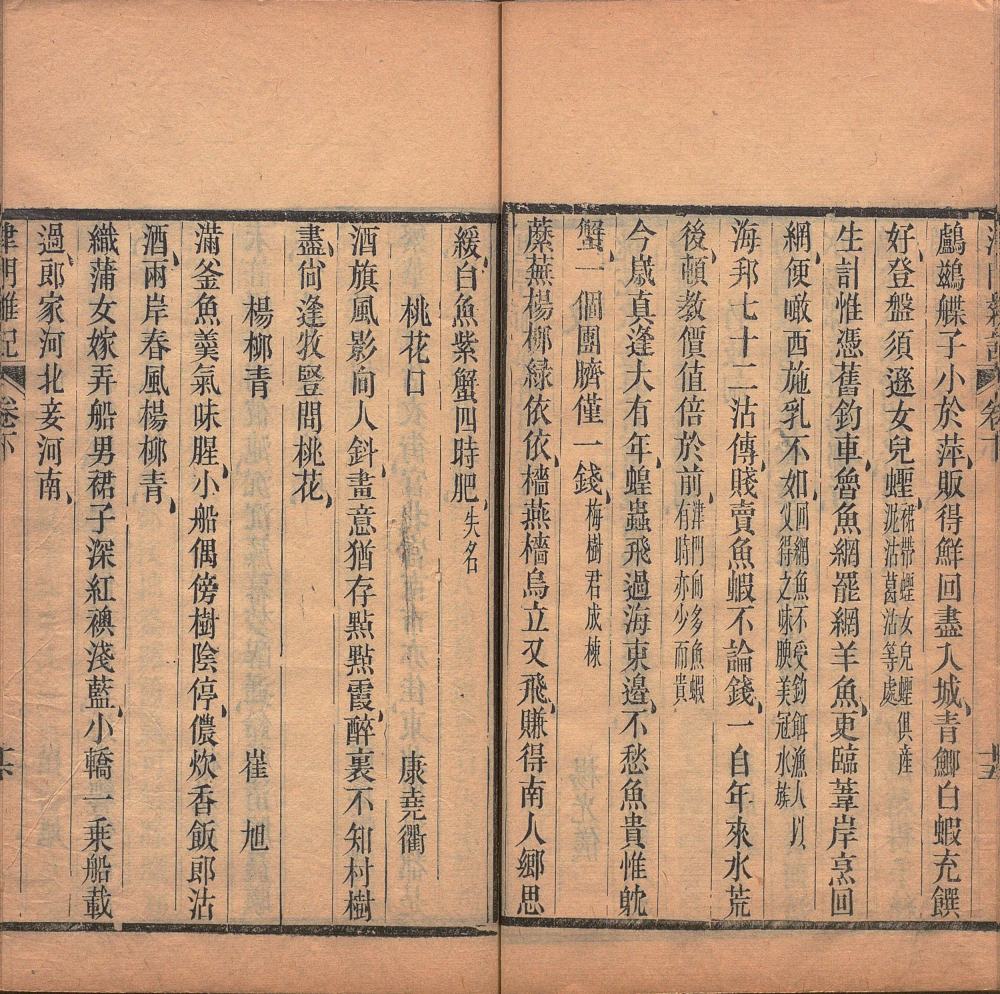 鸕鷀艓子小於萍販得鮮回盡入城青鯽白蝦充饌
好登盤須遜女兒蟶裙帶蟶女兒蟶俱産泥沽葛沽等處
生計惟憑舊釣車魯魚網罷網羊魚更臨葦岸烹回
網便噉西施乳不如回網魚不受鈎餌漁人以㸚得之味腴美冠水族
海邦七十二沽傳賤賣魚蝦不論錢一自年來水荒
後頓教價值倍於前津門向多魚蝦有時亦少而貴
今歲真逢大有年蝗蟲飛過海東邊不愁魚貴惟躭
蟹一個團臍僅一錢梅樹君成棟
蘼蕪楊柳緑依依檣燕檣烏立又飛賺得南人鄉思
緩白魚紫蟹四時肥失名
桃花口 康堯衢
酒旗風影向人斜畫意猶存點點霞醉裏不知村樹
盡尙逢牧豎問桃花
楊柳青 崔旭
滿釜魚羹氣味腥小船偶傍樹陰停儂炊香飯郎沽
酒兩岸春風楊柳青
織蒲女嫁弄船男裙子深紅襖淺藍小轎一乗船載
過郎家河北妾河南
津門雜記 卷下